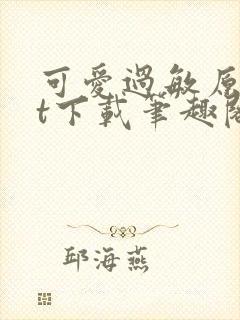 可愛過敏原
t下載筆趣閣
邱海燕